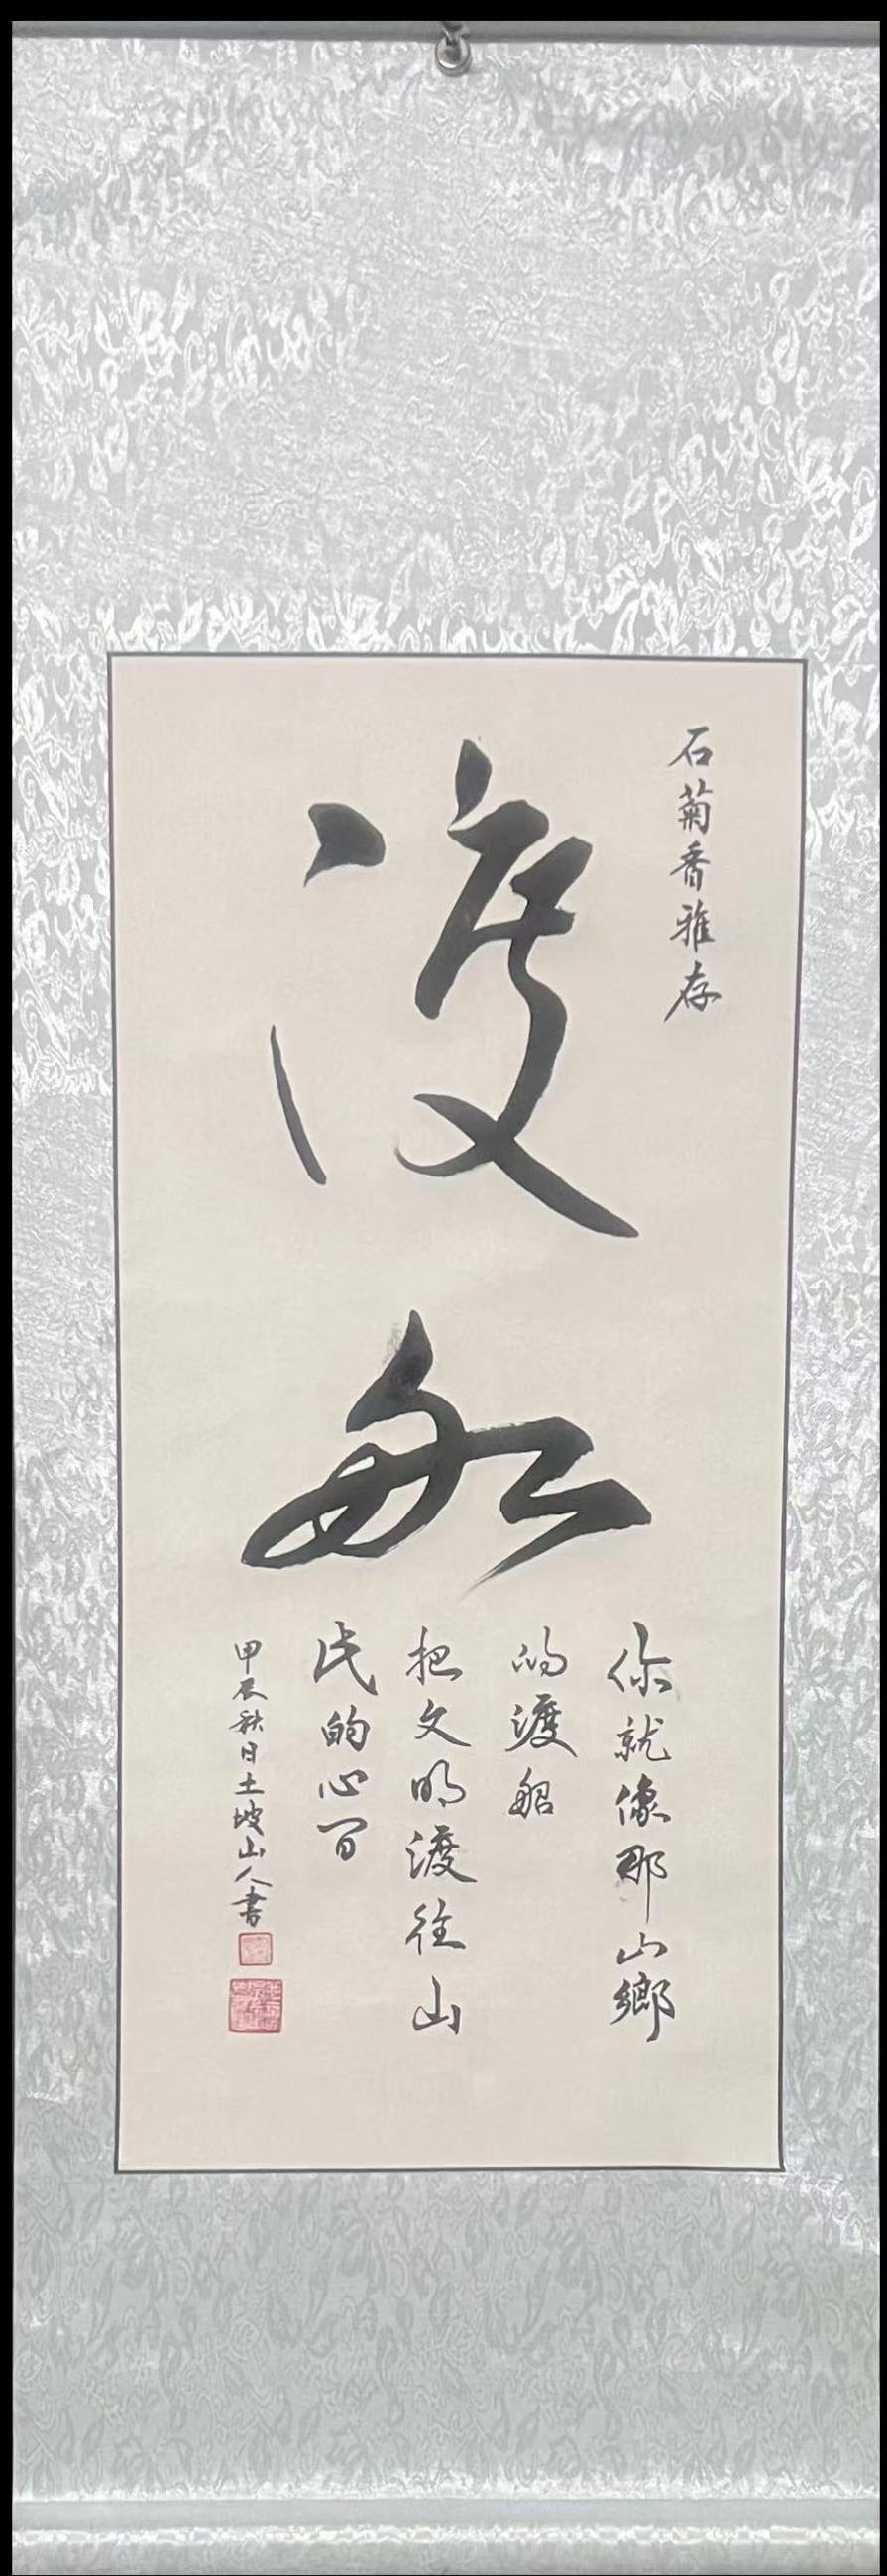 石菊香雅存
渡船
你就像那山鄉
的渡船
把文明渡往山
民的心間
甲辰秋日土坡山人書